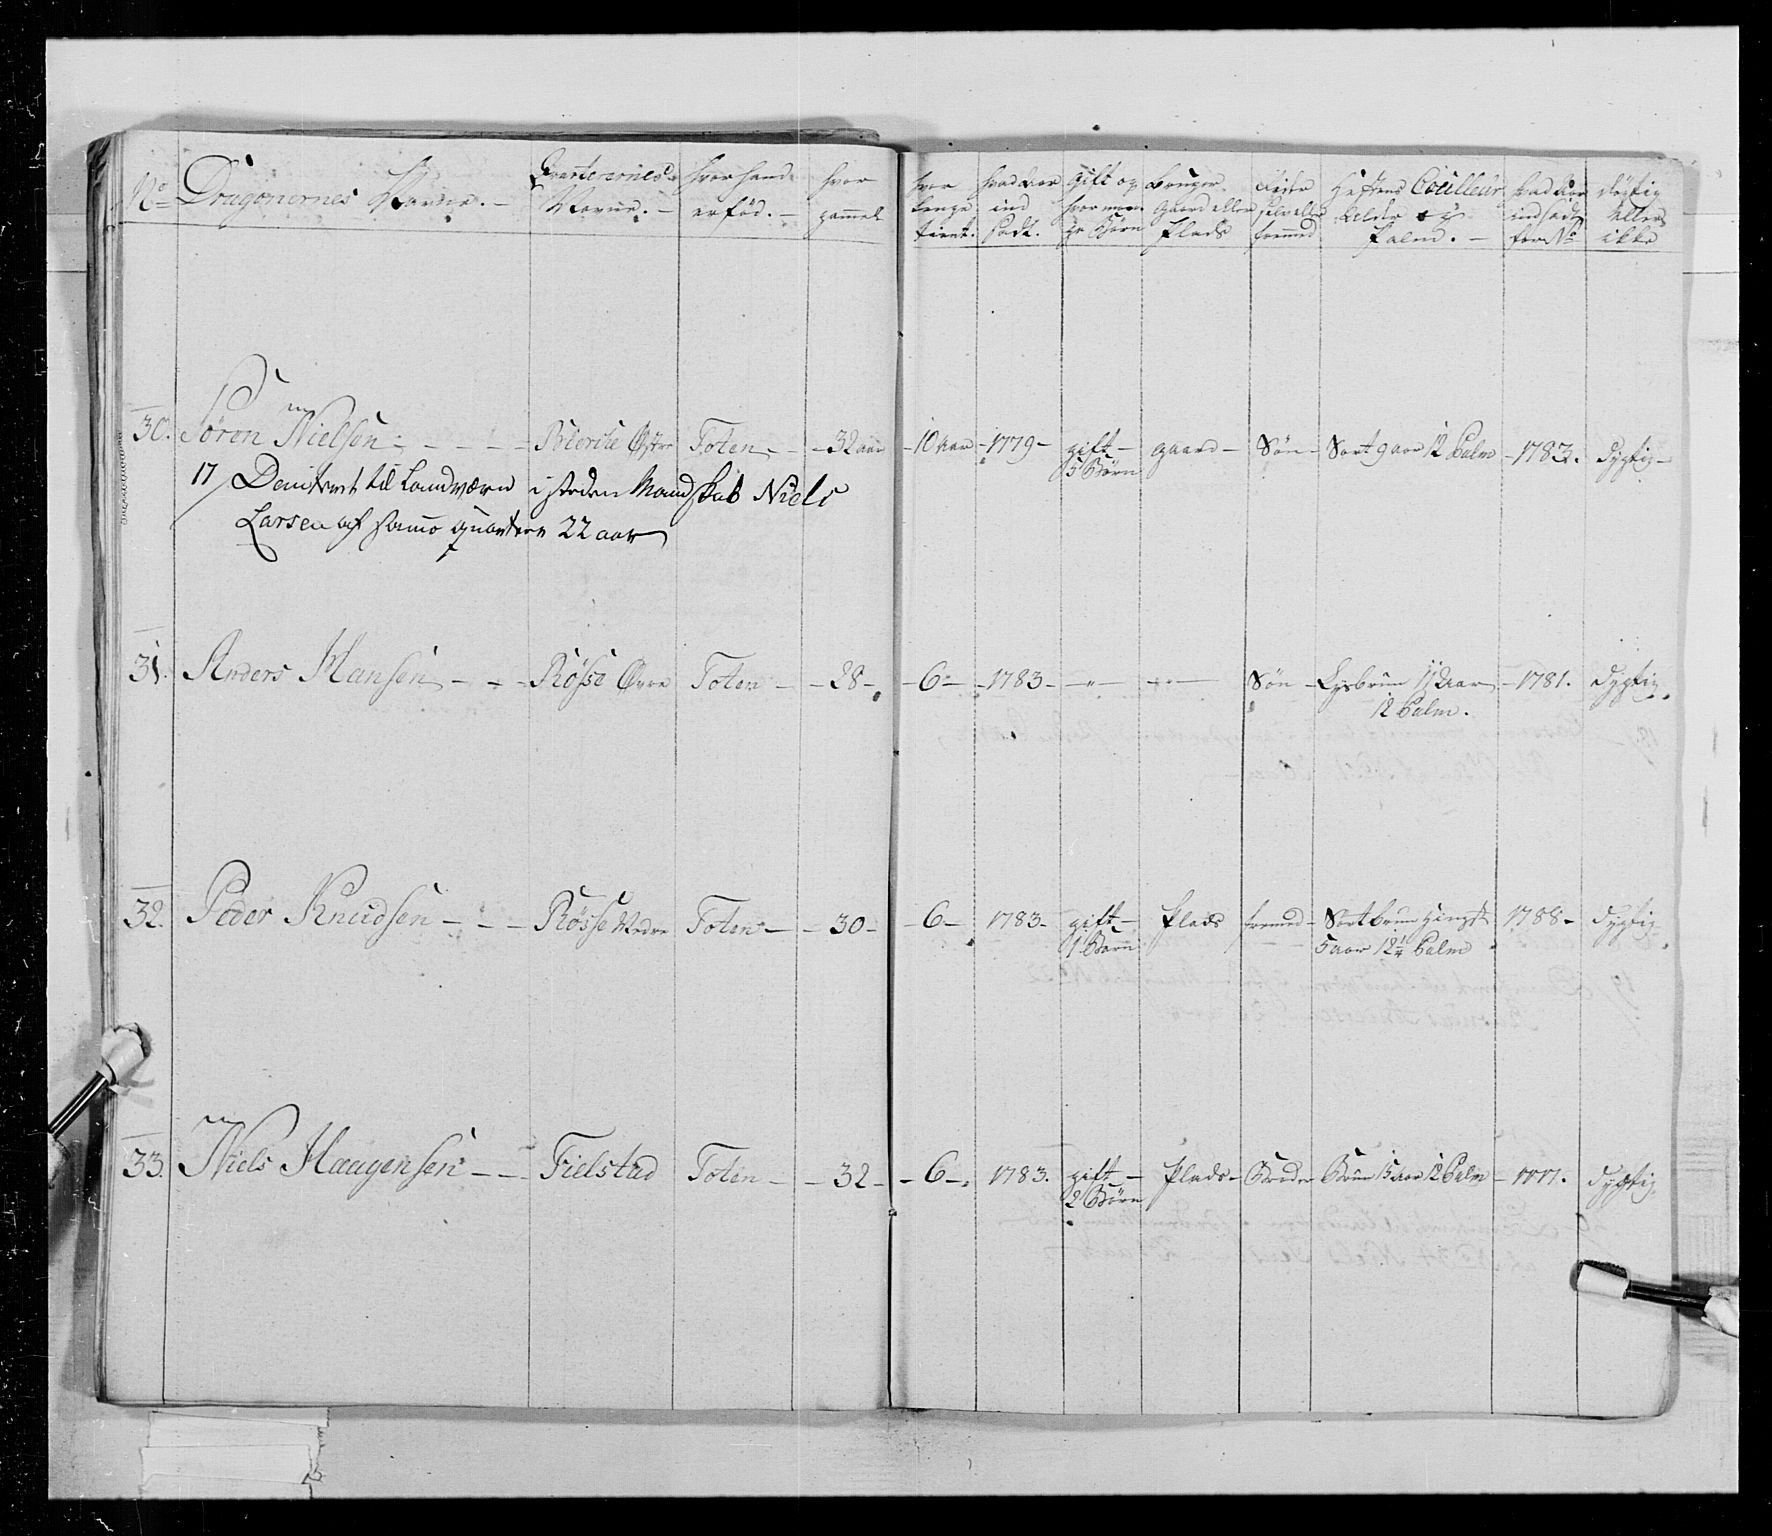 No Dragonernes Navne. Qvarterernes Navne. hvor hand er fød. hvor gammel hvor lenge tient. hvad aar ind sadt. Gift og hvor mange Børn Bruger gaard eller Plads rider selv eller fremmed Hestens Couilleur alder og Palm. hvad Aar indsadt for No dygtig eller ikke
30. Søren Nielsen - Bierche Østre Toten - 32 aar - 10 aar - 1779 - gift - gaard - Søn - Sort 9 aar 12 Palm - 1783. dygtig -
5 Børn
17 Demiteret til Landværn i steden Mandskab Niels
Larsen af samme quarteer 22 aar
31. Anders Hansen - Røsse Øvre Toten - 28 - 6 - 1783 - Søn - Lysbrun 12 Aar - 1781. dygtig
12 Palm.
32. Peder Knudsen - Røsse Nedre Toten - 30 - 6 - 1783 - gift - Plads fremmed - Sortbrun Hingst 1788 - dygtig
1 Barn 5 aar 12 1/4 Palm
33. Niels Haagensen - Fielstad Toten - 32 - 6 - 1783. gift - Plads - Broder Brun 15 aar 12 Palm - 1777. dygtig
2 Børn